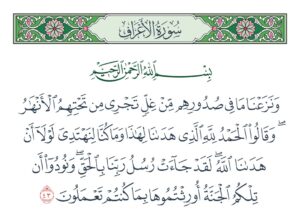 سُورَةُ الْأَعْرَافِ
بِسْمِ اللَّهِ الرَّحْمَٰنِ الرَّحِيمِ
وَنَزَعْنَا مَا فِي صُدُورِهِم مِّنْ غِلٍّ تَجْرِي مِن تَحْتِهِمُ الْأَنْهَٰرُ
ۖ وَقَالُوا الْحَمْدُ لِلَّهِ الَّذِي هَدَىٰنَا لِهَٰذَا وَمَا كُنَّا لِنَهْتَدِيَ لَوْلَا أَنْ
هَدَىٰنَا اللَّهُ ۖ لَقَدْ جَاءَتْ رُسُلُ رَبِّنَا بِالْحَقِّ ۖ وَنُودُوا أَن
تِلْكُمُ الْجَنَّةُ أُورِثْتُمُوهَا بِمَا كُنتُمْ تَعْمَلُونَ ٤٣